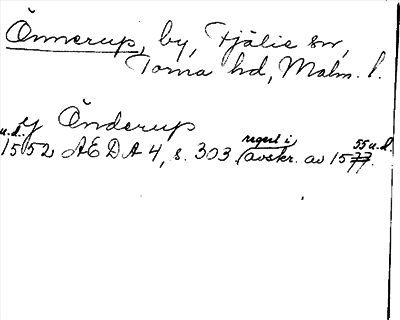 Önnerup, by, Fjälie sn,
Torna hd, Malm. l.
y Önderup
u.d. 1552 AEDA 4, s. 303 (regest i avskr. av 1577. 55 u.d.